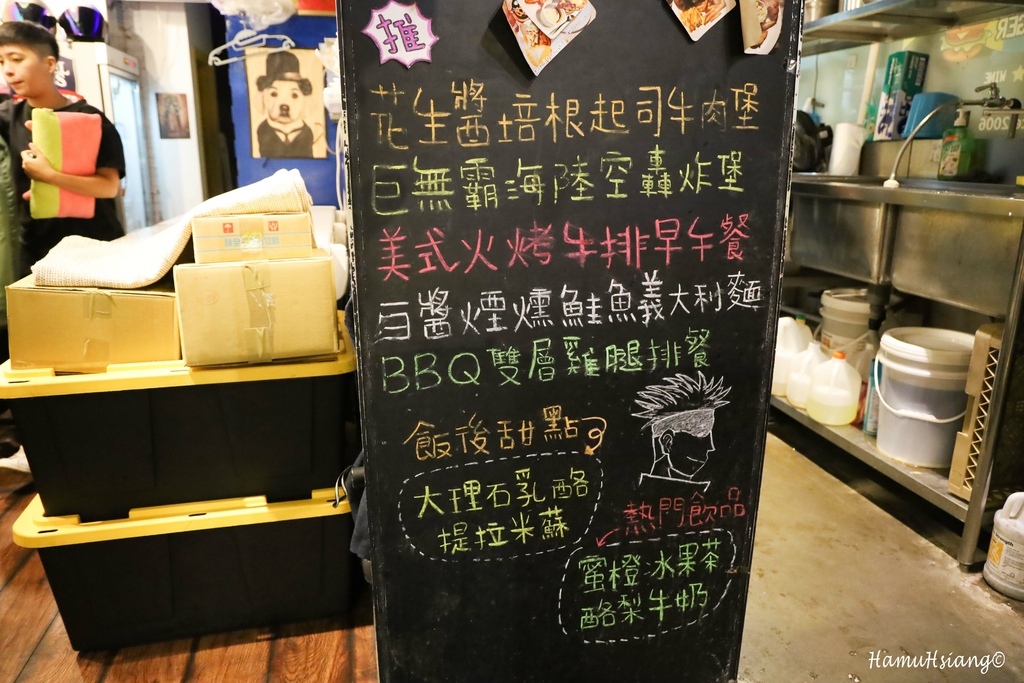 推
花生醬培根起司牛肉堡
巨無霸海陸空轟炸堡
美式火烤牛排早午餐
白醬煙燻鮭魚義大利麵
BBQ雙層雞腿排餐
飯後甜點
大理石乳酪
提拉米蘇
熱門飲品
蜜橙冰果茶
酪梨牛奶
HamuHsiang©